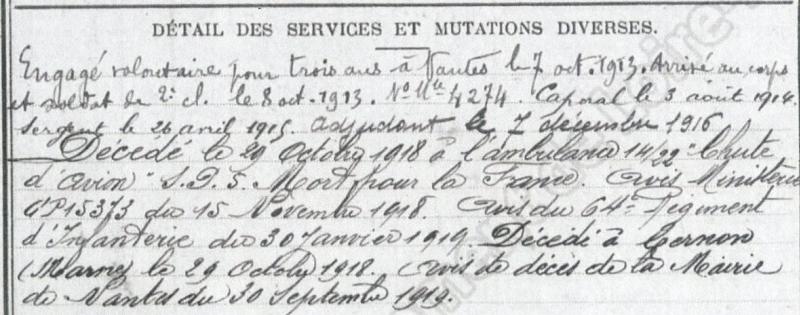 DÉTAIL DES SERVICES ET MUTATIONS DIVERSES.
Engagé volontaire pour trois ans à Nantes le 7 oct. 1913. Arrivé au corps
et soldat de 2e cl. le 8 oct. 1913. No Mle 4274. Caporal le 3 août 1914.
Sergent le 26 avril 1915. adjudant le 7 décembre 1916
Décédé le 29 Octobre 1918 à l'ambulance 14/22 "Chute
d'avion" S.P. 5. Mort pour la France. Avis Ministère
15373 du 15 Novembre 1918. Avis du 64e Régiment
d'Infanterie du 30 Janvier 1919. Décédé à Cernon
(Marne) le 29 Octobre 1918. Avis de décès de la Mairie
de Nantes du 30 Septembre 1919.